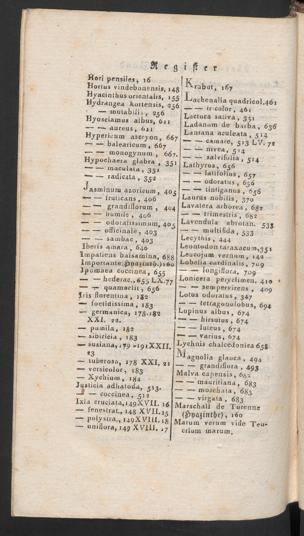 Register
Hori pensiles, 16
Hortus vindebonensis, 148
Hyacinthus orientalis, 155
Hydrangea hortensis, 256
— mutabilis, 256
Hyosciamus albus, 611
— — aureus, 611
Hypericum ascyron, 667
— balearicum, 667
— monogynum, 667.
Hypochaeris glabra, 351
— maculata, 351
— radicata, 352
Jasminum azoricum, 405
— fruticans, 406
— grandiflorum, 404
— humile, 406
— odoratissimum, 405
— officinale, 403
— sambac, 403
Iberis amara, 646
Impatiens balsamina, 688
Ipomaea coccinea, 655
— hederac., 655 LX.77
— quamaclit, 656
Iris florentina, 182
— foetidissima, 183
— germanica, 178.182
XXI. 22.
— pumila, 182
— sibirica, 183
— susiana, 179-191 XXII.
23
— tuberosa, 178 XXI, 21
— versicolor, 183
— Xychium, 184
Justicia adhatoda, 513.
— coccinea, 512
Ixia cruciata, 149 XVII. 16
— fenestrat., 148 XVII. 15
— polysta., 149 XVIII. 18
— uniflora, 149 XVIII. 17
Krabot, 167
Lachenalia quadricol. 461
— — tricolor, 461
Lactuca sativa, 351
Ladanum de barba, 636
Lantana aculeata, 514
— camare, 513 LV. 72
— nivea, 514
— salvifolia, 514
Lathyrus, 656
— latifolius, 657
— odoratus, 656
— tingitanus, 656
Laurus nobilis, 370
Lavatera arborea, 682
— trimestris, 682
Lavendula abutan. 538
— multifida, 533
Lecythis, 444
Leontodon taraxacum, 351
Leucojum vernum, 142
Lobelia cardinalis, 709
— longiflora, 709
Lonicera peryclimen. 410
— sempervirens, 409
Lotus odoratus, 347
— tetragonolobus, 694
Lupinus albus, 674
— hirsutus, 674
— luteus, 674
— varius, 674
Lychnis chalcedonica 658
Magnolia glauca, 494
— grandiflora, 493
Malva capensis, 682
— mauritiana, 683
— moschata, 683
— virgata, 683
Marschall de Turenne
(Hyazinthe), 160
Marum verum vide Teucrium marum.